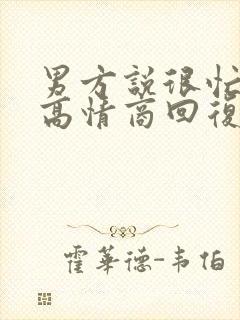 男方説很忙
高情商回復
霍華德-韦伯